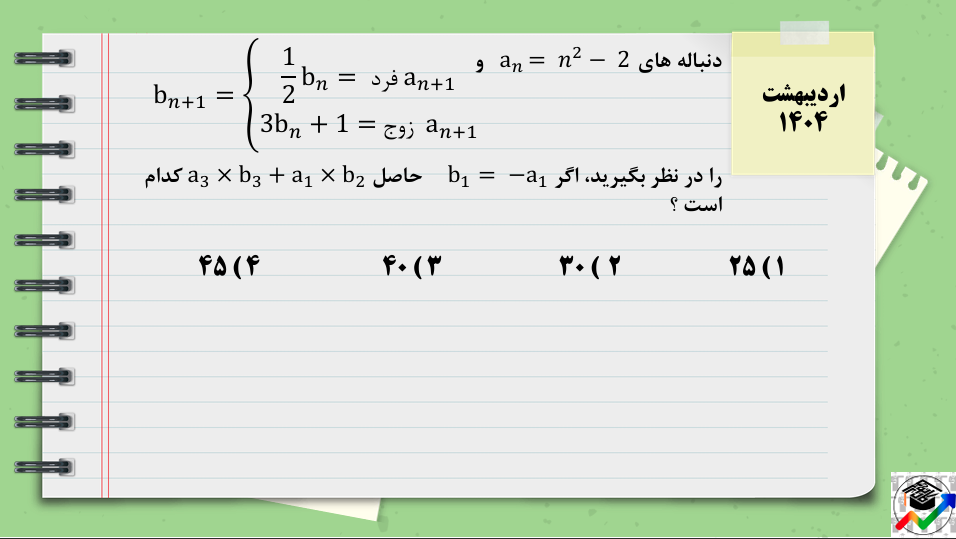 اردیبهشت
۱۴۰۴
دنباله های aₙ = n² − 2 و
bₙ₊₁ = {
1/2 bₙ = فرد aₙ₊₁
3bₙ + 1 = زوج aₙ₊₁
را در نظر بگیرید، اگر b₁ = −a₁ حاصل a₃ × b₃ + a₁ × b₂ کدام
است ؟
۱) ۲۵ ۲) ۳۰ ۳) ۴۰ ۴) ۴۵